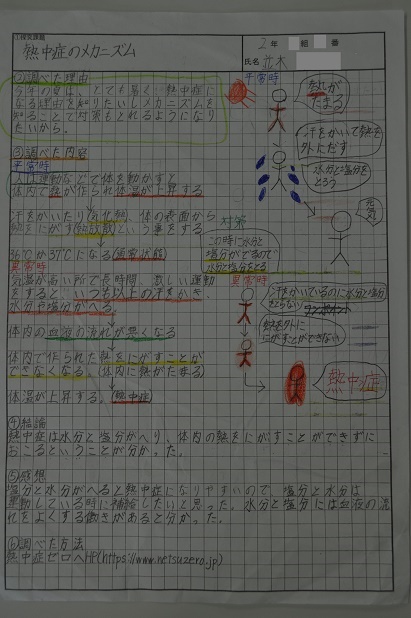 ①探究課題
熱中症のメカニズム
2年 組 番
氏名 並木
②調べた理由
今年の夏は、とても暑く、熱中症に
なる理由を知りたいしメカニズムを
知ることで対策もとれるようになり
たいから。
③調べた内容
平常時
人は運動などで体を動かすと
体内で熱が作られ体温が上昇する
汗をかいたり(気化熱)、体の表面から
熱をにがす(熱放散)という事をする
36℃か37℃になる(通常状態)
異常時
気温が高い所で長時間、激しい運動
をすると、いつも以上の汗をかき、
水分や塩分がへる。
体内の血液の流れが悪くなる
体内で作られた熱をにがすことが
できなくなる。(体内に熱がたまる)
体温が上昇する。(熱中症)
平常時
熱が
たまる
汗をかいて熱を
外にだす
水分と塩分を
とろう
元気!
対策
この時に水分と
塩分がでるので
水分と塩分をとる
異常時
汗をかいているのに水分と塩分
とらない
熱を外に
にがすことができない
熱中症
④結論
熱中症は水分と塩分がへり、体内の熱をにがすことができずに
おこるということが分かった。
⑤感想
塩分と水分がへると熱中症になりやすいので、塩分と水分は
運動している時に補給したいと思った。水分と塩分には血液の流
れをよくする働きがあると分かった。
⑥調べた方法
熱中症ゼロへHP(https://www.netsuzero.jp)